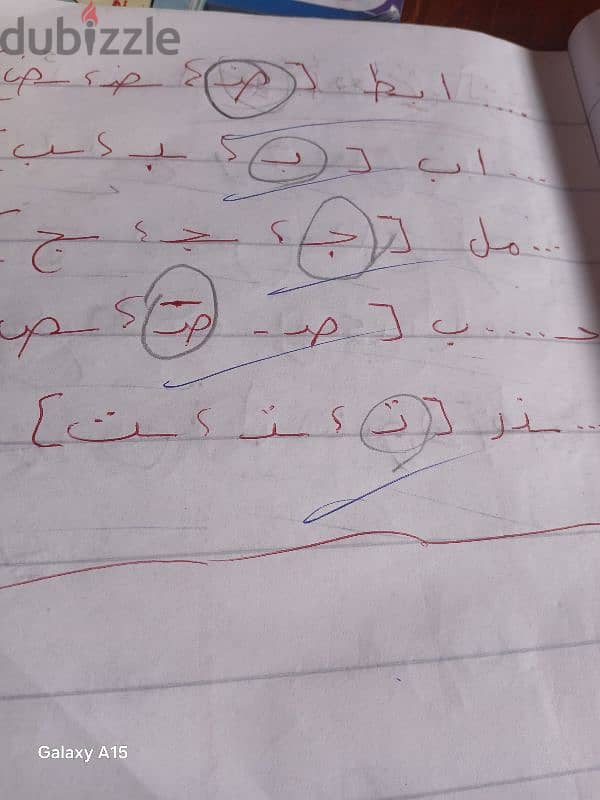 dubizzle
....ابط [ضـ ؟ ـضـ ؟ ـض
...اب [بـ ؟ ـبـ ؟ ـب
...مل [جـ ؟ ـجـ ؟ ـج
د.....ب [صـ - ـصـ ؟ ـص
...نر [تـ ؟ ـتـ ؟ ـت]
Galaxy A15